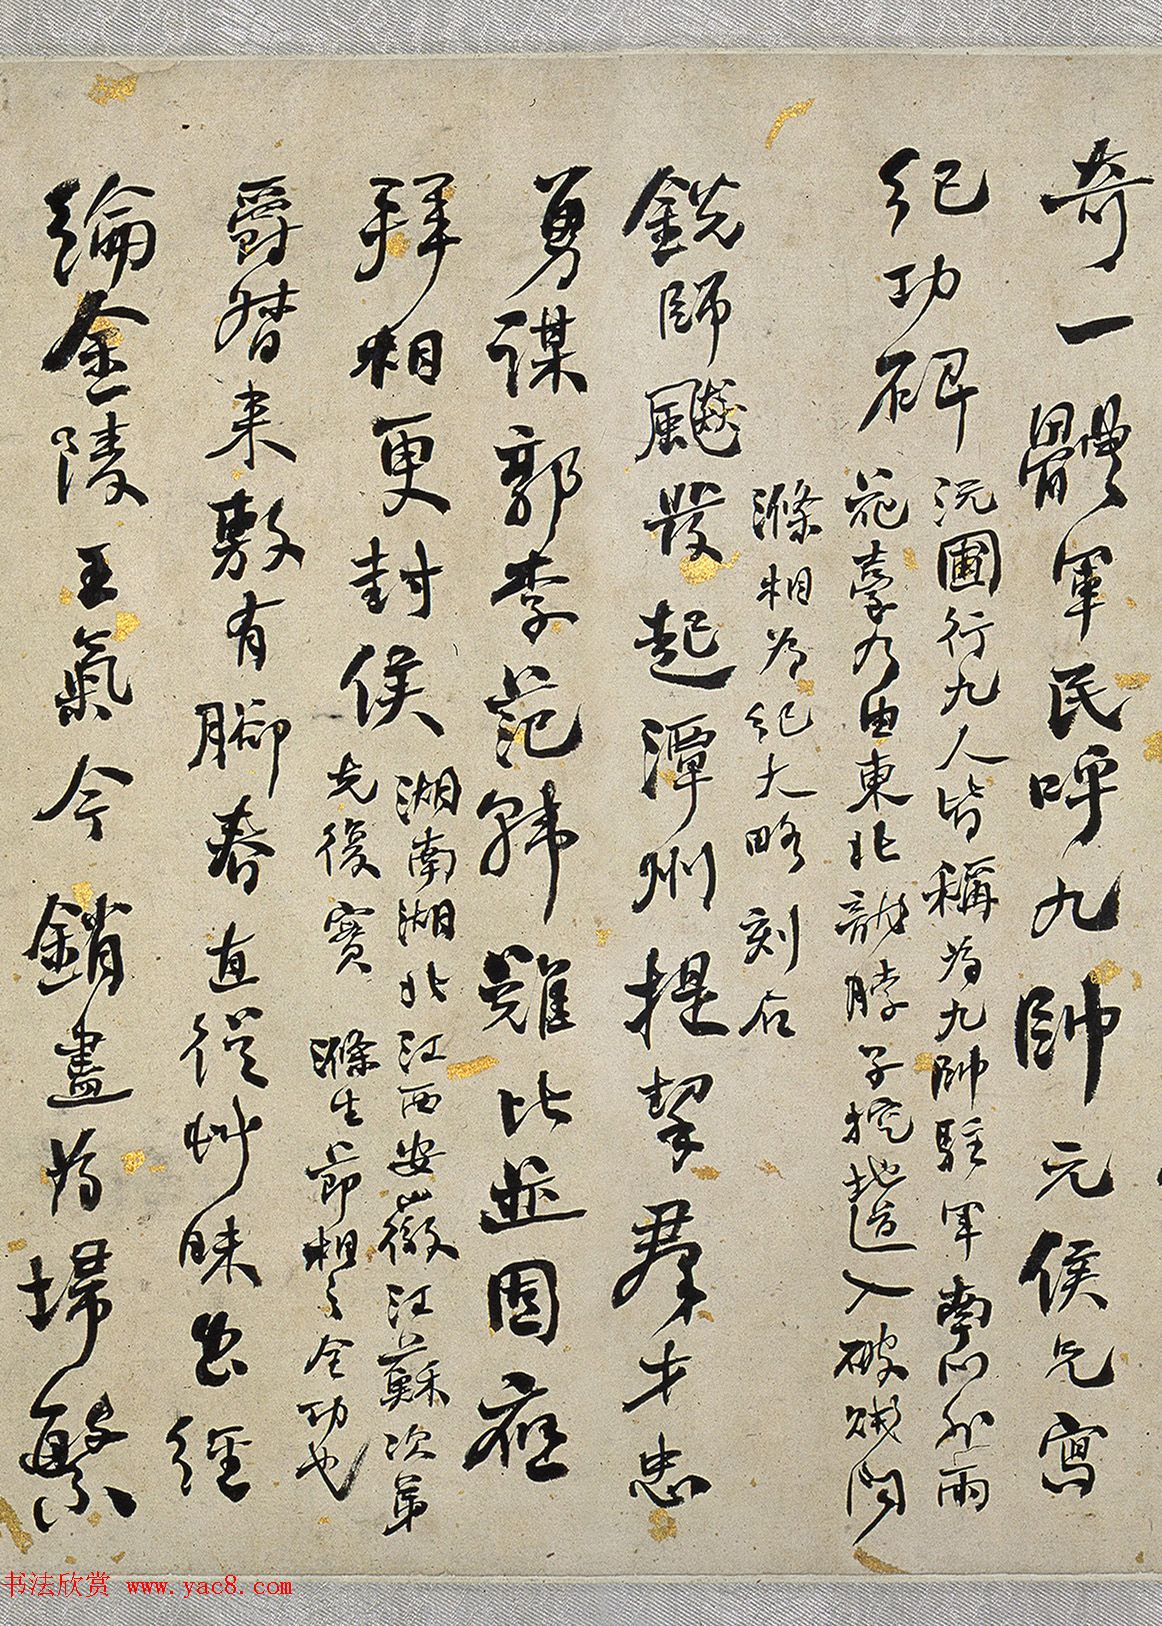 奇一體軍民呼九帥元侯兄寫
紀功碑
沅圃行九人皆稱為九帥駐軍南門外雨
花臺乃由東北龍脖子挖地道入破賊閧
滌相為紀大略刻石
銳師飇發起潭州提挈羣才忠
勇謀郭李范韓難比並固應
拜相更封侯
湖南湖北江西安徽江蘇次第
克復實滌生節相之全功也
爵督來敷有腳春直從草昧出經
綸金陵王氣今銷盡為埽繁
书法欣赏 www.yac8.com